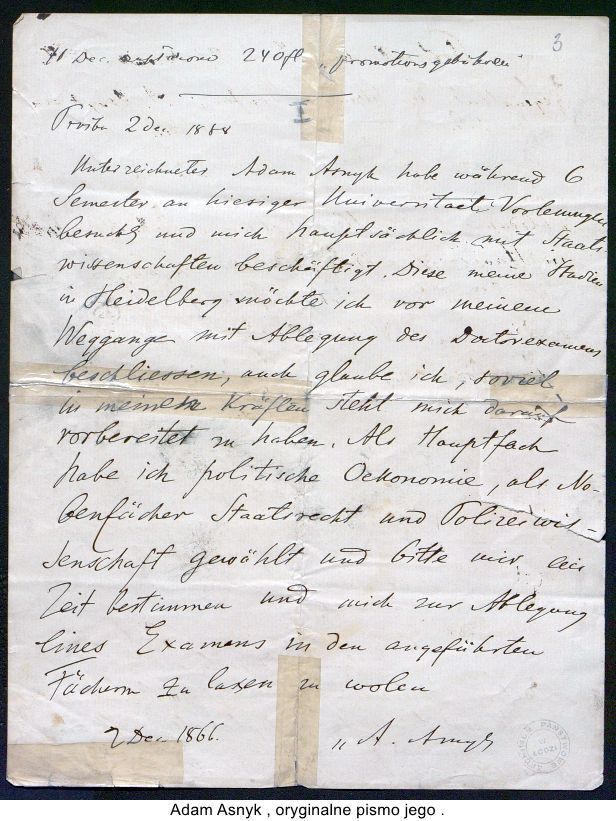 3
11 Dec. 240 fl „promotionsgebühren"
I
2 Dec 1868
Unterzeichneter Adam Asnyk habe während 6
Semester an hiesiger Universitaet Vorlesungen
besucht und mich hauptsächlich mit Staats
wissenschaften beschäftigt. Diese meine Studien
in Heidelberg möchte ich vor meinem
Weggange mit Ablegung des Doctorexamens
beschliessen, auch glaube ich, soviel
in meinen Kräften steht mich darauf
vorbereitet zu haben. Als Hauptfach
habe ich politische Oekonomie, als Ne-
benfächer Staatsrecht und Polizeiwis-
senschaft gewählt und bitte mir die
Zeit bestimmen und mich zur Ablegung
eines Examens in den angeführten
Fächern zu laxen zu wolen
2 Dec 1866.
„ A. Asnyk
Adam Asnyk , oryginalne pismo jego .